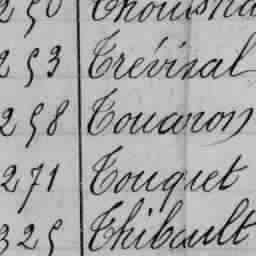 250
253 Trévisal
258 Touaron
271 Touquet
325 Thibault